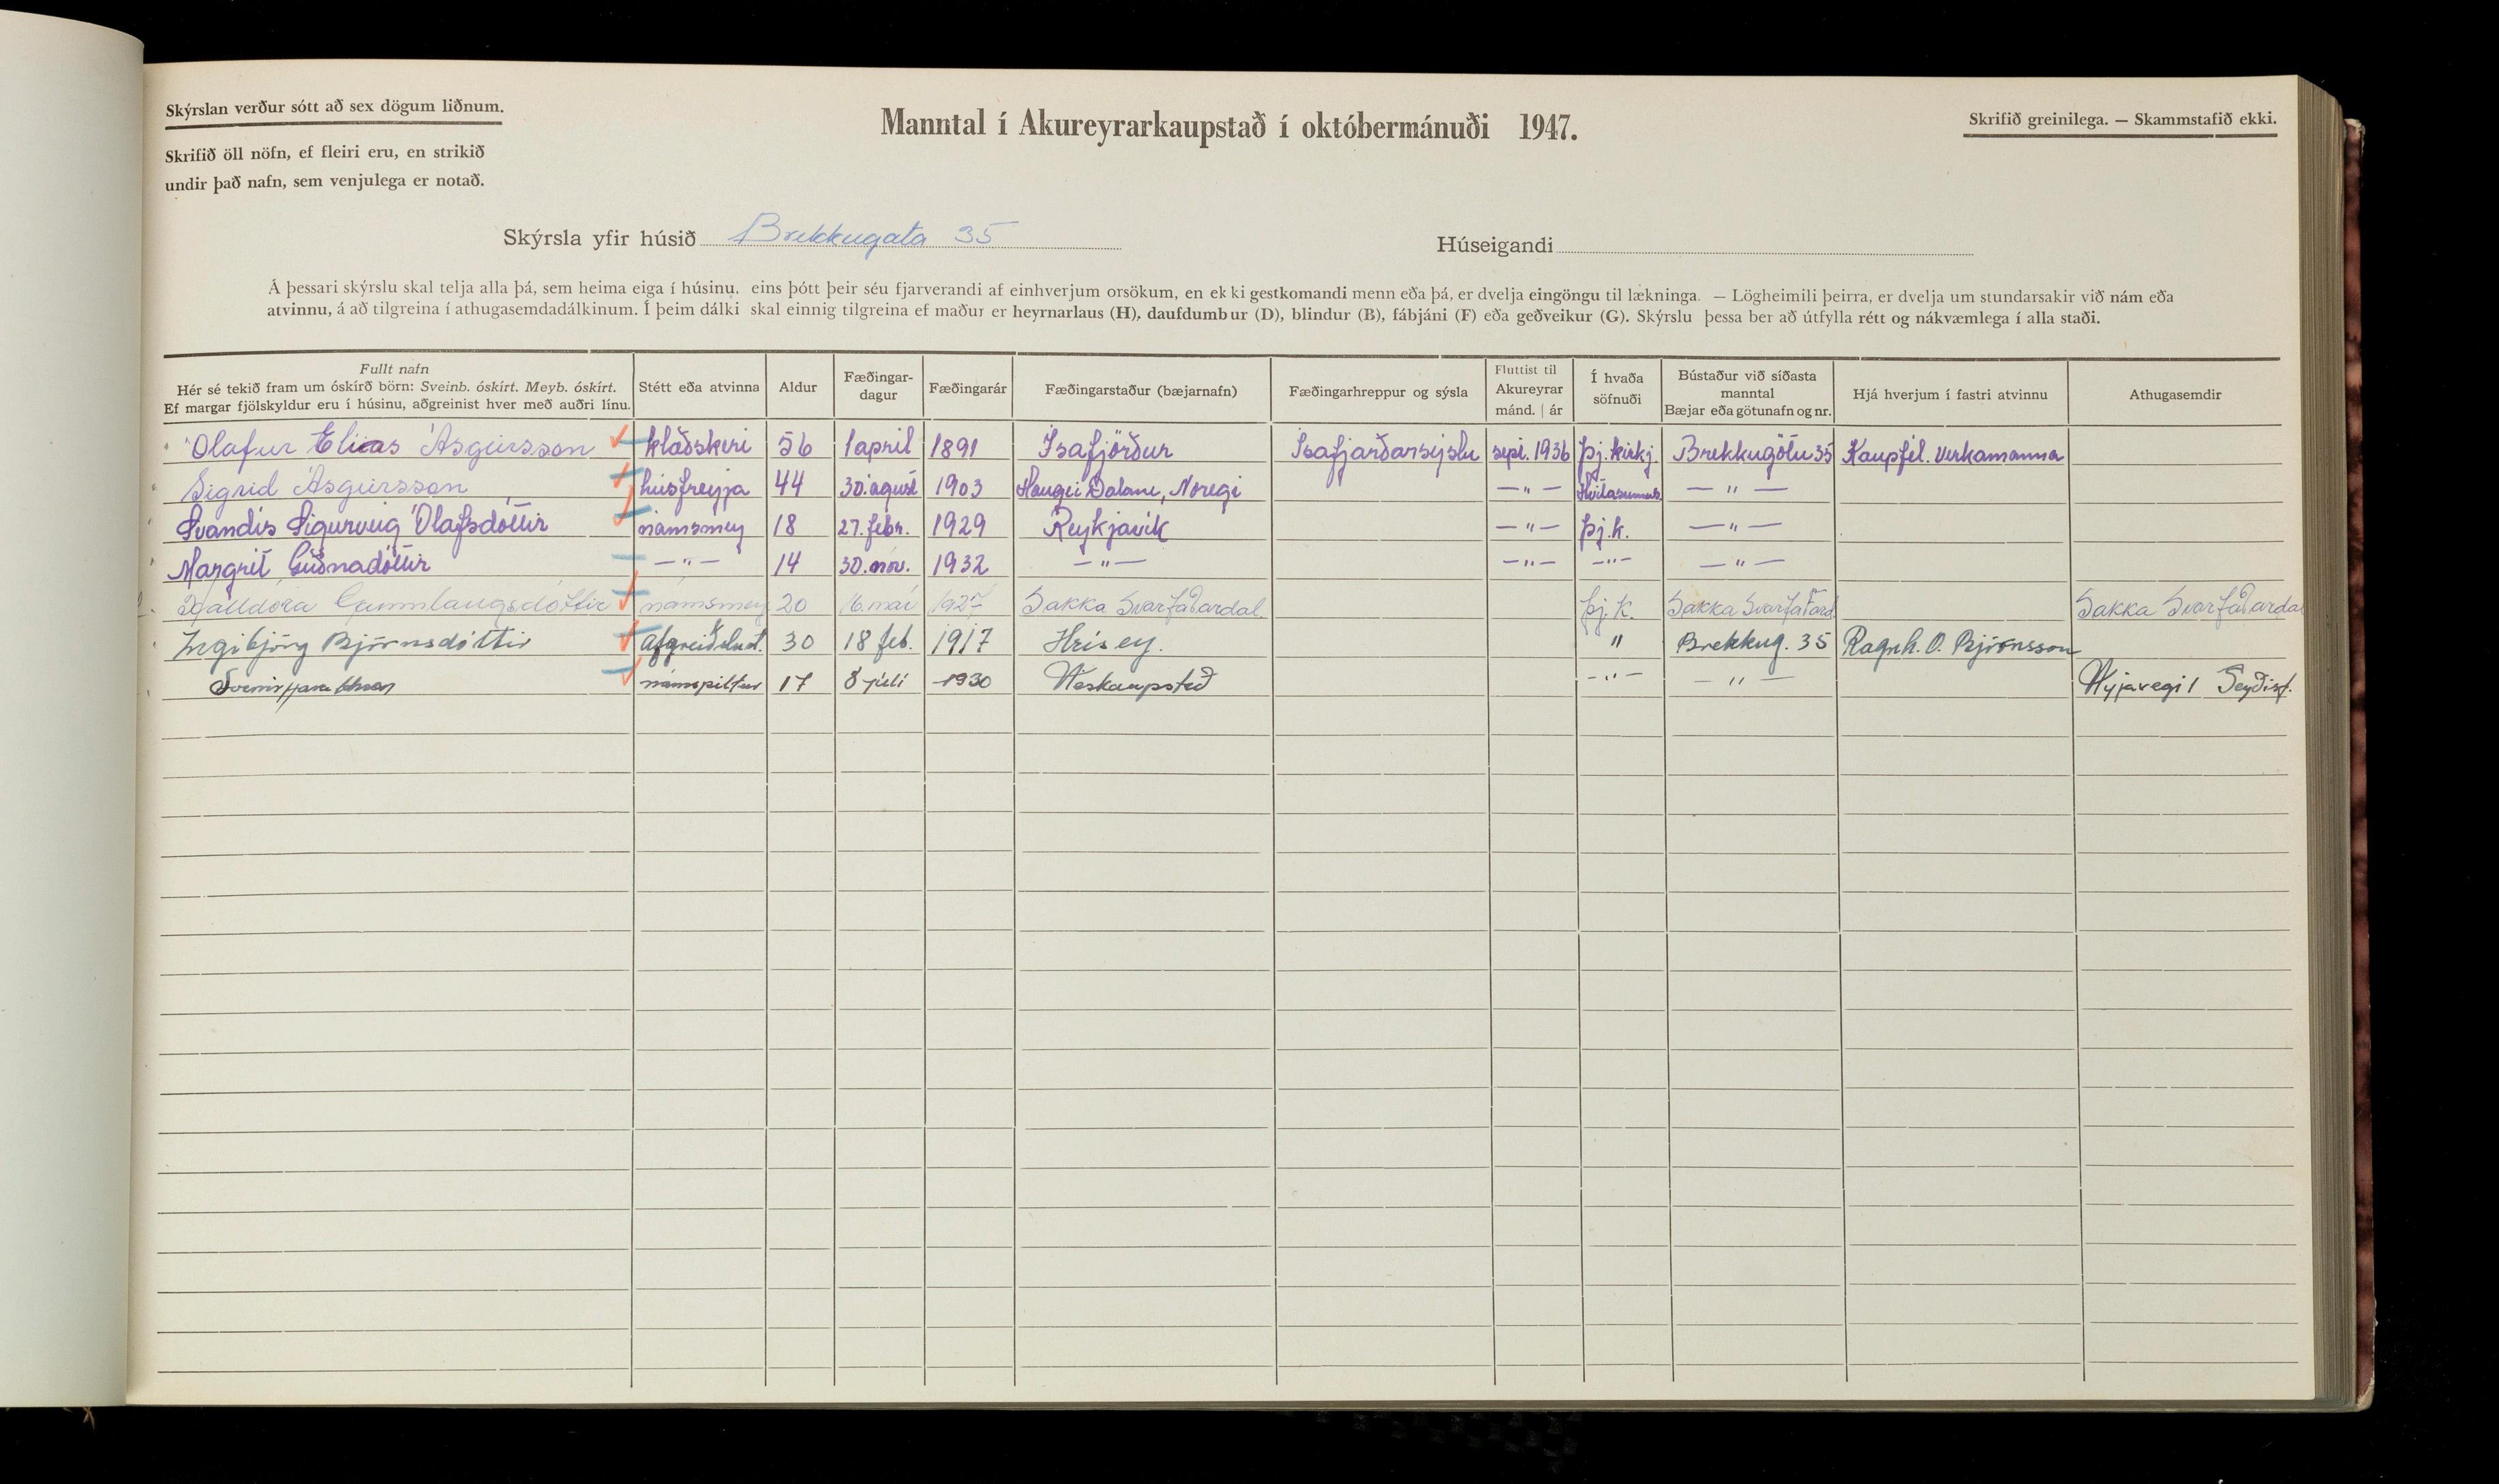 Skýrslan verður sótt að sex dögum liðnum.
Skrifið öll nöfn, ef fleiri eru, en strikið
undir það nafn, sem venjulega er notað.
Manntal í Akureyrarkaupstað í októbermánuði 1947.
Skrifið greinilega. — Skammstafið ekki.
Skýrsla yfir húsið Brekkugata 35
Húseigandi
Á þessari skýrslu skal telja alla þá, sem heima eiga í húsinu. eins þótt þeir séu fjarverandi af einhverjum orsökum, en ekki gestkomandi menn eða þá, er dvelja eingöngu til lækninga. — Lögheimili þeirra, er dvelja um stundarsakir við nám eða
atvinnu, á að tilgreina í athugasemdadálkinum. Í þeim dálki skal einnig tilgreina ef maður er heyrnarlaus (H), daufdumbur (D), blindur (B), fábjáni (F) eða geðveikur (G). Skýrslu þessa ber að útfylla rétt og nákvæmlega í alla staði.
Fullt nafn
Hér sé tekið fram um óskírð börn: Sveinb. óskírt. Meyb. óskírt.
Ef margar fjölskyldur eru í húsinu, aðgreinist hver með auðri línu.
Stétt eða atvinna
Aldur
Fæðingar-
dagur
Fæðingarár
Fæðingarstaður (bæjarnafn)
Fæðingarhreppur og sýsla
Fluttist til
Akureyrar
mánd. | ár
Í hvaða
söfnuði
Bústaður við síðasta
manntal
Bæjar eða götunafn og nr.
Hjá hverjum í fastri atvinnu
Athugasemdir
Ólafur Elías Ásgeirsson klæðskeri 56 1 apríl 1891 Ísafjörður Ísafjarðarsýslu sept. 1936 Þj. kirkj. Brekkugötu 35 Kaupfél. Verkamanna
Sigrid Ásgeirsson húsfreyja 44 30. ágúst 1903 Dalane, Noregi — " — Hvítasunnus. — " —
Svandís Sigurveig Ólafsdóttir námsmey 18 27. febr. 1929 Reykjavík — " — Þj. k. — " —
Margrét Guðnadóttir — " — 14 30. nóv. 1932 — " — — " — — " — — " —
Halldóra Gunnlaugsdóttir námsmey 20 16. maí 1927 Sakka Svarfaðardal Þj. k. Sakka Svarfaðard. Sakka Svarfaðardal
Ingibjörg Björnsdóttir afgreiðslust. 30 18 feb. 1917 Hrísey. " Brekkug. 35 Ragnh. O. Björnsson
námspiltur 17 8 júlí 1930 Neskaupstað — " — — " — Nýjavegi 1 Seyðisf.